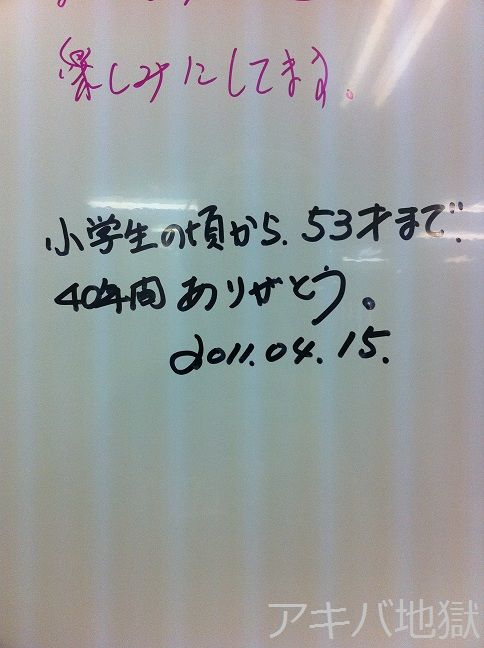 楽しみにしてます。
小学生の頃から、53才まで、
40年間ありがとう。
2011.04.15.
アキバ地獄